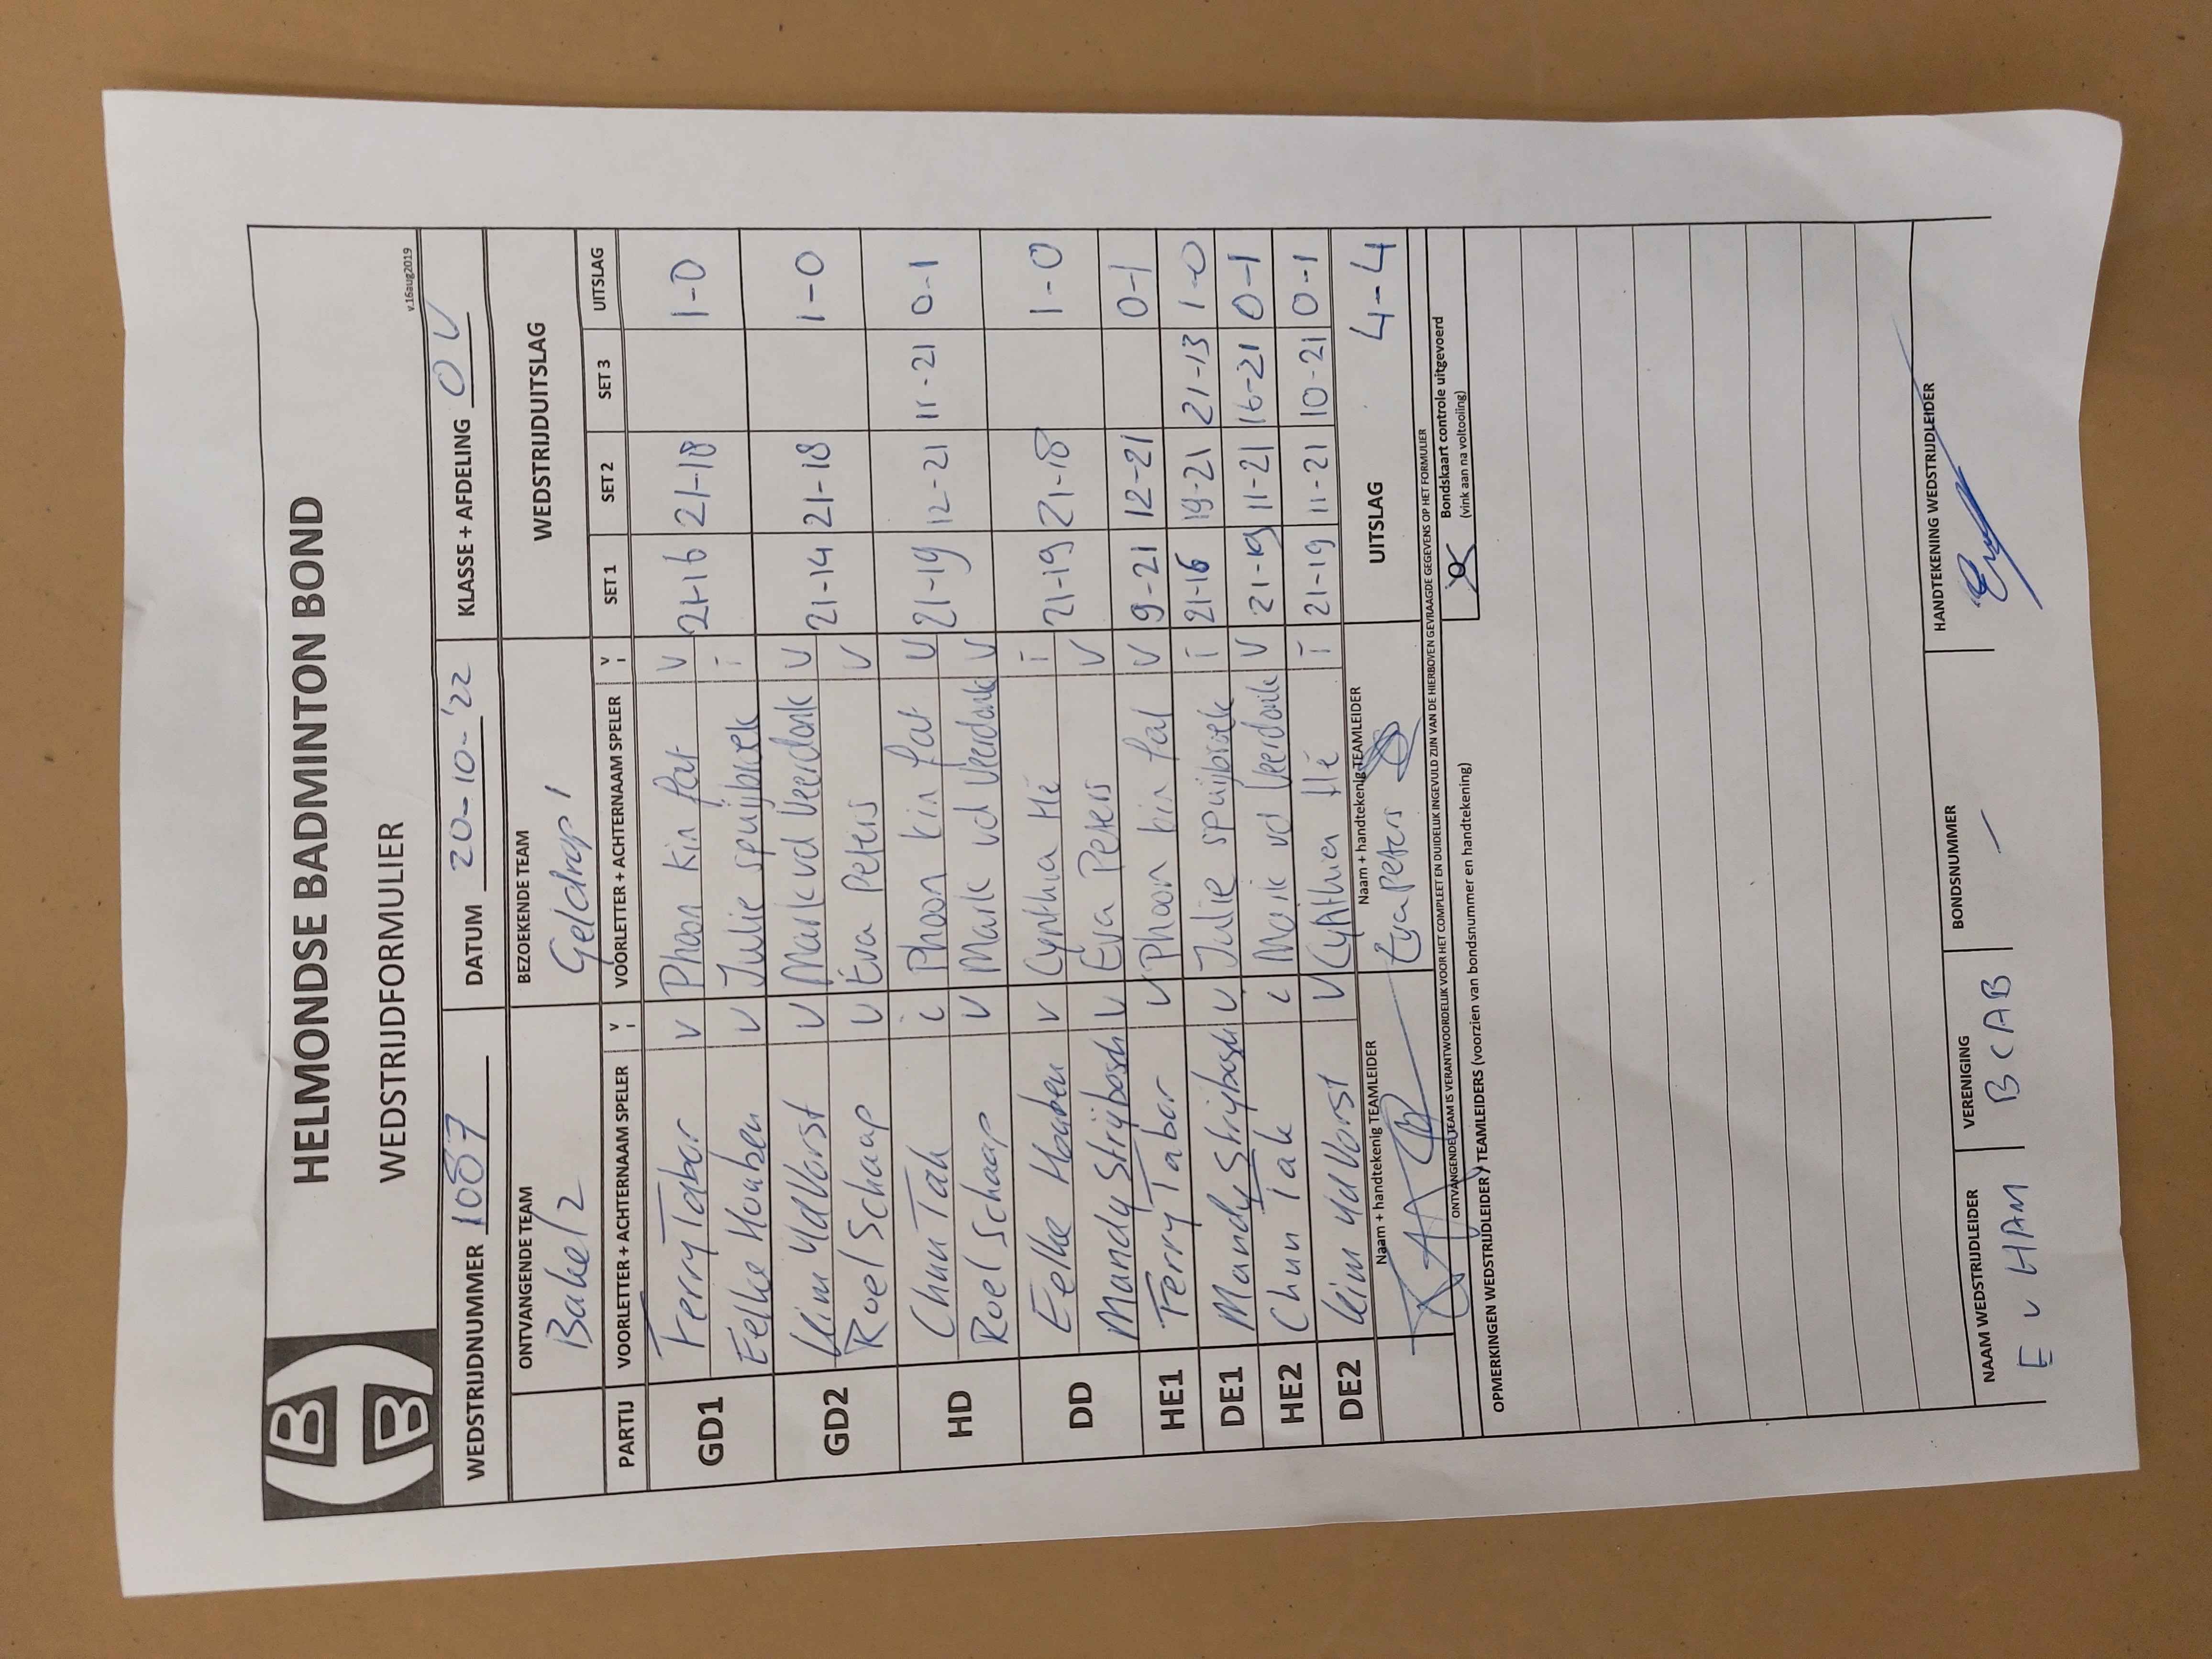 HELMONDSE BADMINTON BOND
WEDSTRIJDFORMULIER
v.16aug2019
WEDSTRIJDNUMMER 1007 DATUM 20-10-'22 KLASSE + AFDELING OV
ONTVANGENDE TEAM BEZOEKENDE TEAM WEDSTRIJDUITSLAG
Bakel 2 Geldrop 1
PARTIJ VOORLETTER + ACHTERNAAM SPELER V I VOORLETTER + ACHTERNAAM SPELER V I SET 1 SET 2 SET 3 UITSLAG
GD1 Ferry Tabor V Phoon kin fat V 21-16 21-18 1-0
Eelke Houben V Julie spuijbroek i
GD2 Kim vd Vorst V Mark vd Veerdonk V 21-14 21-18 1-0
Roel Schaap V Eva Peters V
HD Chun Tak i Phoon kin fat V 21-19 12-21 11-21 0-1
Roel Schaap V Mark vd Veerdonk V
DD Eelke Houben V Cynthia Hé i 21-19 21-18 1-0
Mandy Strijbosch V Eva Peters V
HE1 Ferry Tabor V Phoon kin fat V 9-21 12-21 0-1
DE1 Mandy Strijbosch V Julie spuijbroek i 21-16 19-21 21-13 1-0
HE2 Chun Tak i Mark vd Veerdonk V 21-19 11-21 16-21 0-1
DE2 Kim vd Vorst V Cynthia Hé i 21-19 11-21 10-21 0-1
Naam + handtekenig TEAMLEIDER Naam + handtekenig TEAMLEIDER UITSLAG 4-4
Eva Peters
ONTVANGENDE TEAM IS VERANTWOORDELIJK VOOR HET COMPLEET EN DUIDELIJK INGEVULD ZIJN VAN DE HIERBOVEN GEVRAAGDE GEGEVENS OP HET FORMULIER
OPMERKINGEN WEDSTRIJDLEIDER / TEAMLEIDERS (voorzien van bondsnummer en handtekening)
Bondskaart controle uitgevoerd
(vink aan na voltooling)
NAAM WEDSTRIJDLEIDER VERENIGING BONDSNUMMER HANDTEKENING WEDSTRIJDLEIDER
E v HAM BCAB —